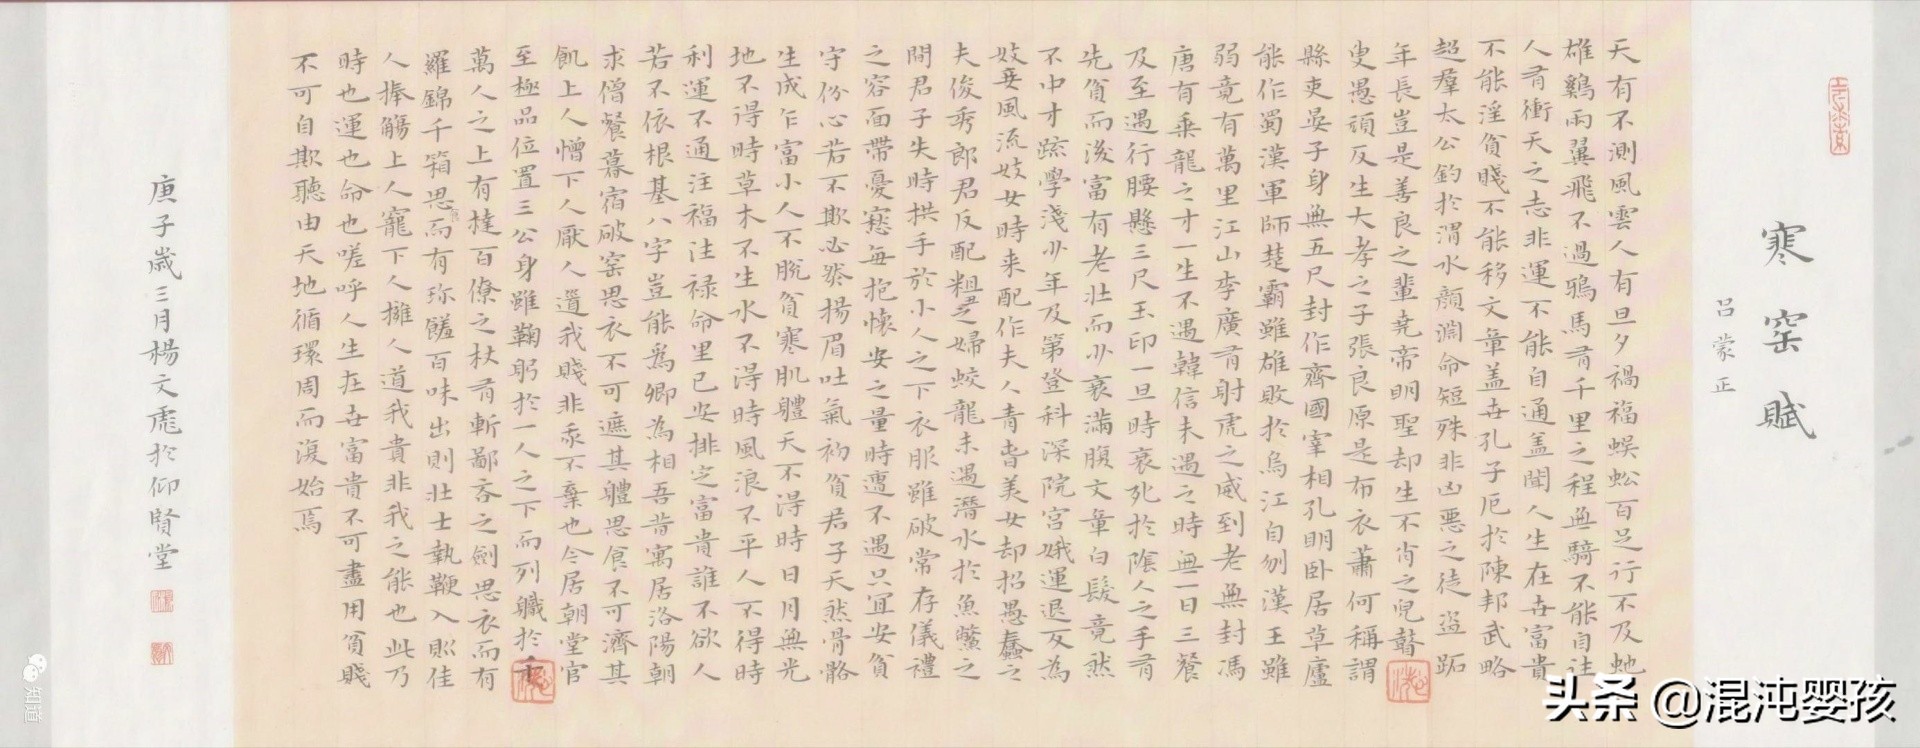 寒窑賦
呂蒙正
天有不測風雲人有旦夕禍福蜈蚣百足行不及虵
雄鷄兩翼飛不過鴉馬有千里之程無騎不能自往
人有衝天之志非運不能自通盖聞人生在世富貴
不能淫貧賤不能移文章盖世孔子厄於陳邦武略
超羣太公釣於渭水顏淵命短殊非凶惡之徒盜跖
年長豈是善良之輩堯帝明聖却生不肖之兒瞽
叟愚頑反生大孝之子張良原是布衣蕭何稱謂
縣吏晏子身無五尺封作齊國宰相孔明卧居草廬
能作蜀漢軍師楚霸雖雄敗於烏江自刎漢王雖
弱竟有萬里江山李廣有射虎之威到老無封馮
唐有乘龍之才一生不遇韓信未遇之時無一日三餐
及至遇行腰懸三尺玉印一旦時衰死於陰人之手有
先貧而後富有老壯而少衰滿腹文章白髮竟然
不中才疏學淺少年及第登科深院宮娥運退反為
妓妾風流妓女時来配作夫人青春美女却招愚蠢之
夫俊秀郎君反配粗丑婦蛟龍未遇潛水於魚鱉之
間君子失時拱手於小人之下衣服雖破常存儀禮
之容面帶憂愁每抱懷安之量時遭不遇只宜安貧
守份心若不欺必然揚眉吐氣初貧君子天然骨骼
生成乍富小人不脫貧寒肌體天不得時日月無光
地不得時草木不生水不得時風浪不平人不得時
利運不通注福注祿命里已安排定富貴誰不欲人
若不依根基八字豈能為卿為相吾昔寓居洛陽朝
求僧餐暮宿破窑思衣不可遮其體思食不可濟其
飢上人憎下人厭人道我賤非我不棄也今居朝堂官
至極品位置三公身雖鞠躬於一人之下而列職於千
萬人之上有撻百僚之杖有斬鄙吝之劍思衣而有
羅錦千箱思而有珍饈百味出則壯士執鞭入則佳
人捧觴上人寵下人擁人道我貴非我之能也此乃
時也運也命也嗟呼人生在世富貴不可盡用貧賤
不可自欺聽由天地循環周而復始焉
庚子歲三月楊文虎於仰賢堂
知道
头条 @混沌婴孩